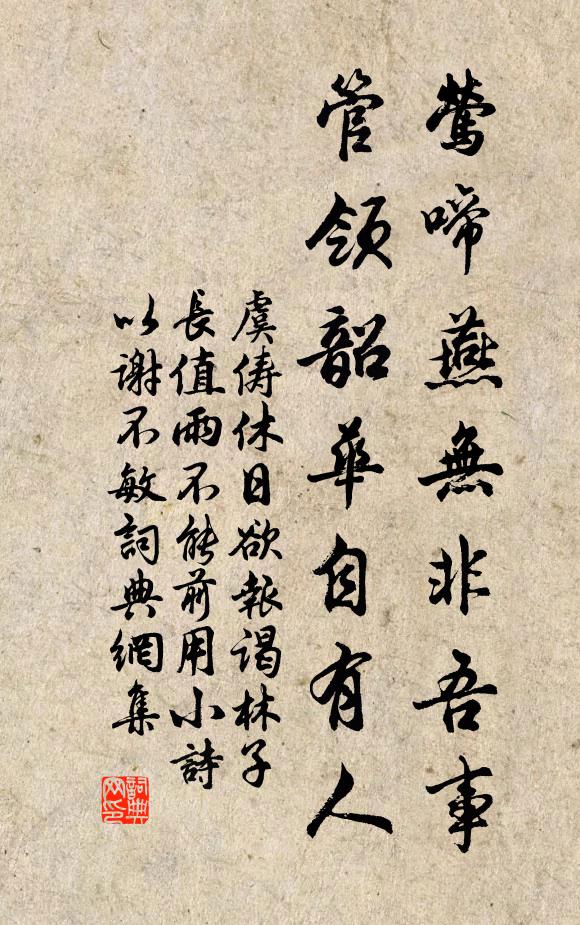 鶯啼燕無非吾事
管領韶華自有人
虞儔休日欲報謁林子
長值雨不能前用小詩
以謝不敏詞典網集
詞典
网印